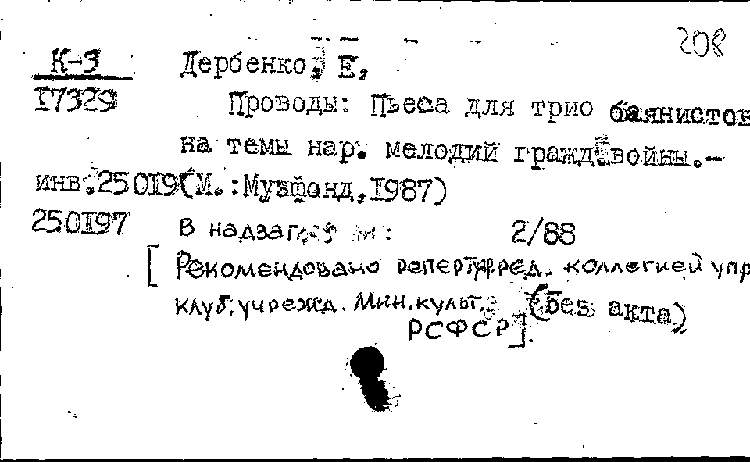 208
К-3 Дербенко, Е,
I7329 Проводы: Пьеса для трио баянистов
на темы нар. мелодий гражд. войны.-
инв. 25 0I9 (М.:Музфонд,I987)
250I97 В надзаг : 2/88
[Рекомендовано реперт. ред. коллегией упр
клуб. учрежд. Мин. культ. (без акта)
РСФСР].